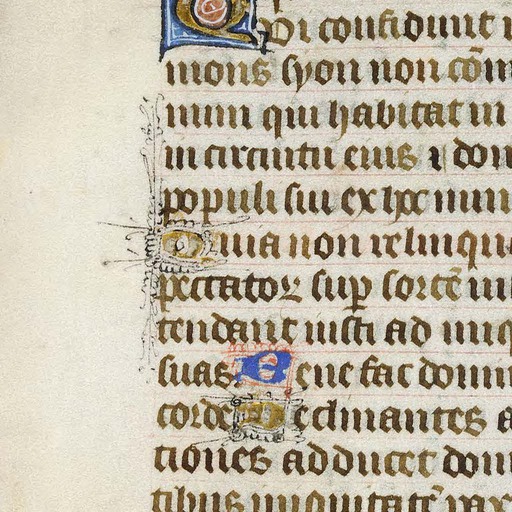 Qui confidunt i
mons syon non cõm
num qui habitat in
in circuitu eius ⁊ dom
populi sui ex hoc nunc
Quia non relinqu
peccatorz sup sortē iu
tendant iusti ad iniq
suas Bene fac domin
corde Declinantes a
tiones adducet dom
tibus iniquitatē pax